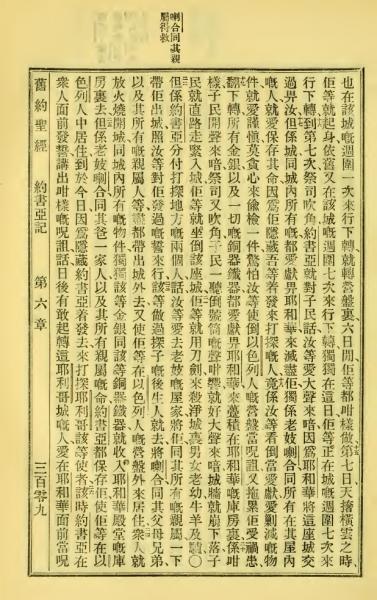 喇合同其親
屬得救
也在該城嘅週圍一次來行下轉就轉營盤裏六日閒佢等都咁樣做第七日天撞橫雲之時
佢等就起身依舊又在該城嘅週圍七次來行下轉獨獨在這日佢等正在城嘅週圍七次來
行下轉到第七次祭司吹角約書亞就對子民話汝等愛大聲來喑因爲耶和華將這座城交
過畀汝但係城同城內所有嘅都愛獻畀耶和華來滅盡佢獨係老妓喇合同所有在其屋內
嘅人就愛保存其命因爲佢隱藏吾等着發來打探嘅人竟係汝等看倒當愛獻愛剿滅嘅物
件就愛謹愼莫貪心來偸檢一件驚怕汝等使倒以色列人嘅營盤當呪詛又拖累佢受禍患
翻下轉所有金銀以及一切嘅銅器鐵器都愛獻畀耶和華來積在耶和華嘅庫房裏係咁
樣子民聞聲來喑祭司又吹角子民一聽倒號筒嘅聲咁響就好大聲來喑城牆就崩下落子
民就直路走緊入城佢等就坐倒該座城佢等就用刀劍來殺淨城裏男女老幼牛羊及驢〇
但係約書亞分付打探地方嘅兩個人話汝等愛去老妓嘅屋家將佢同其所有嘅親屬一下
帶佢出城照汝等對佢發過嘅誓來行該等做過探子嘅後生人就去將喇合同其父母兄弟
以及其所有嘅親屬人等都帶出城外去又使佢等在以色列人嘅營盤外來居住衆人就
放火燒開城同城內所有嘅物件獨獨該等金銀同該等銅器鐵器就收入耶和華殿堂嘅庫
房裏去但係老妓喇合同其爸一家人以及其所有親屬嘅命約書亞都保存佢使佢等在以
色列人中居住到於今日因爲隱藏約書亞着發去來打探耶利哥該等使者該時約書亞在
衆人面前發誓講出咁樣嘅呪詛話日後有敢起轉這耶利哥城嘅人愛在耶和華面前當呪
舊約聖經 約書亞記 第六章 三百零九